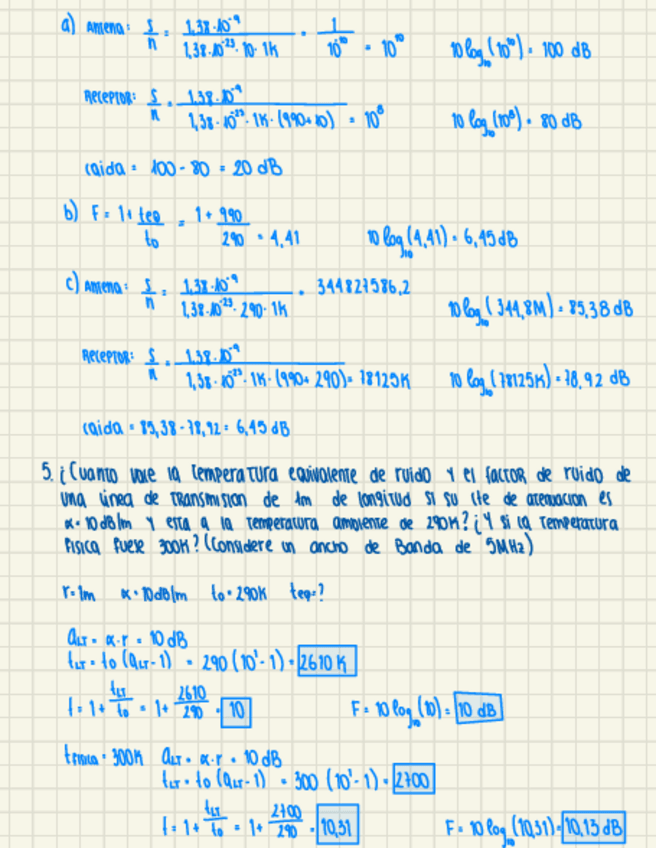 a) Antena: s/n = 1,38·10⁻⁹ / 1,38·10⁻²³·10·1K = 1/10⁻¹⁰ = 10¹⁰ 10 log₁₀(10¹⁰) = 100 dB
Receptor: s/n = 1,38·10⁻⁹ / 1,38·10⁻²³·1K·(990+10) = 10⁸ 10 log₁₀(10⁸) = 80 dB
caida = 100 - 80 = 20 dB
b) F = 1 + teq/to = 1 + 990/290 = 4,41 10 log₁₀(4,41) = 6,45 dB
c) Antena: s/n = 1,38·10⁻⁹ / 1,38·10⁻²³·290·1K = 344827586,2 10 log₁₀(344,8M) = 85,38 dB
Receptor: s/n = 1,38·10⁻⁹ / 1,38·10⁻²³·1K·(990+290) = 78125K 10 log₁₀(78125K) = 78,92 dB
caida = 85,38 - 78,92 = 6,45 dB
5. ¿Cuanto vale la temperatura equivalente de ruido y el factor de ruido de
una linea de transmision de 1m de longitud si su cte de atenuacion es
α = 10 dB/m y esta a la temperatura ambiente de 290K? ¿Y si la temperatura
fisica fuese 300K? (Considere un ancho de Banda de 5MHz)
r = 1m α = 10dB/m to = 290K teq = ?
aLT = α·r = 10 dB
tLT = to (aLT - 1) = 290 (10¹ - 1) = 2610 K
f = 1 + tLT/to = 1 + 2610/290 = 10 F = 10 log₁₀(10) = 10 dB
tfisica = 300K aLT = α·r = 10 dB
tLT = to (aLT - 1) = 300 (10¹ - 1) = 2700
f = 1 + tLT/to = 1 + 2700/290 = 10,31 F = 10 log₁₀(10,31) = 10,13 dB